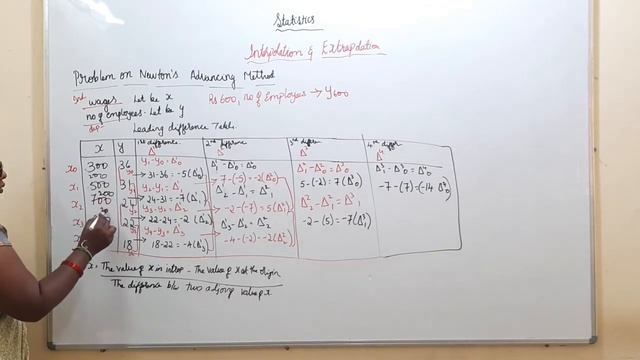 Statistics
Interpolation & Extrapolation
Problem on Newton's Advancing Method
wages Let be x
Rs 600, no of Employees → Y600
no of employees. Let be y
Leading difference Table.
x y 1st difference 2nd difference 3rd difference 4th differ
Δ Δ² Δ³ Δ⁴
x0 300 36 y1-y0=Δ0 Δ1-Δ0=Δ²0 Δ²1-Δ²0=Δ³0 Δ³1-Δ³0=Δ⁴0
200 31-36=-5(Δ0) -7-(-5)=-2(Δ²0) 5-(-2)=7(Δ³0) -7-(7)=(-14 Δ⁴0)
x1 500 31 y2-y1=Δ1 Δ2-Δ1=Δ²1
200 24-31=-7(Δ1) -2-(-7)=5(Δ²1) Δ²2-Δ²1=Δ³1
x2 700 24 y3-y2=Δ2 Δ3-Δ2=Δ²2 -2-(5)=-7(Δ³1)
22-24=-2(Δ2) -4-(-2)=-2(Δ²2)
x3 22 y4-y3=Δ3
18 18-22=-4(Δ3)
x = The value of x in intrp - The value of x at the origin
The difference b/w two adjoing value of x.